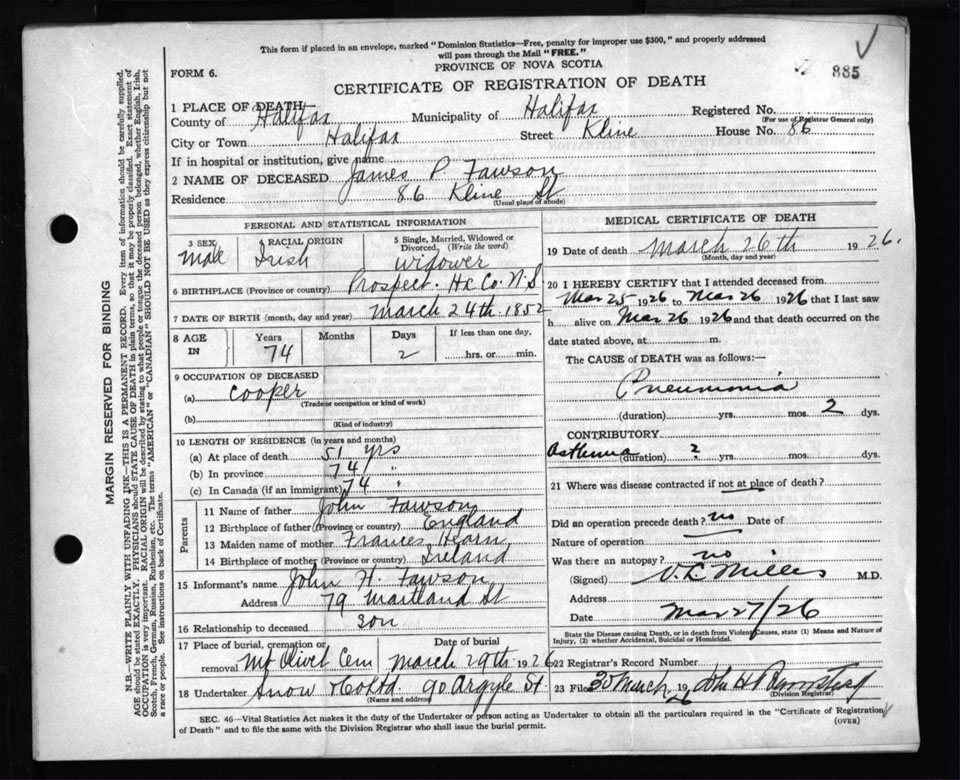 This form if placed in an envelope, marked "Dominion Statistics—Free, penalty for improper use $300," and properly addressed
will pass through the Mail "FREE."
PROVINCE OF NOVA SCOTIA
885
FORM 6.
CERTIFICATE OF REGISTRATION OF DEATH
MARGIN RESERVED FOR BINDING
N.B.—WRITE PLAINLY WITH UNFADING INK—THIS IS A PERMANENT RECORD. Every item of information should be carefully supplied.
AGE should be stated EXACTLY. PHYSICIANS should STATE CAUSE OF DEATH in plain terms, so that it may be properly classified. Exact statement of
OCCUPATION is very important. RACIAL ORIGIN will be described by stating to what people or tongue the deceased person belonged, whether English, Irish,
Scotch, French, German, Russian, Ruthenian, etc. The terms "AMERICAN" or "CANADIAN" SHOULD NOT BE USED as they express citizenship but not
a race or people. See instructions on back of Certificate.
1 PLACE OF DEATH
County of Halifax Municipality of Halifax Registered No.
(For use of Registrar General only)
City or Town Halifax Street Kline House No. 86
If in hospital or institution, give name
2 NAME OF DECEASED James P Fawson
Residence 86 Kline St
(Usual place of abode)
PERSONAL AND STATISTICAL INFORMATION
3 SEX Male
4 RACIAL ORIGIN Irish
5 Single, Married, Widowed or
Divorced, (Write the word)
widower
6 BIRTHPLACE (Province or country) Prospect. Hx Co. N.S
7 DATE OF BIRTH (month, day and year) March 24th 1852
8 AGE IN
Years 74
Months
Days 2
If less than one day,
hrs. or min.
9 OCCUPATION OF DECEASED
(a) cooper
(Trade or occupation or kind of work)
(b)
(Kind of industry)
10 LENGTH OF RESIDENCE (in years and months)
(a) At place of death 51 yrs
(b) In province 74 "
(c) In Canada (if an immigrant) 74 "
Parents
11 Name of father John Fawson
12 Birthplace of father (Province or country) England
13 Maiden name of mother Frances Hearn
14 Birthplace of mother (Province or country) Ireland
15 Informant's name John H. Fawson
Address 79 Maitland St
16 Relationship to deceased son
17 Place of burial, cremation or
removal Mt Olivet Cem
Date of burial
March 29th 1926
18 Undertaker Snow & Co Ltd. 90 Argyle St.
(Name and address)
MEDICAL CERTIFICATE OF DEATH
19 Date of death March 26th 1926.
(Month, day and year)
20 I HEREBY CERTIFY that I attended deceased from
Mar 25 1926 to Mar 26 1926 that I last saw
h alive on Mar 26 1926 and that death occurred on the
date stated above, at m.
The CAUSE of DEATH was as follows:—
Pneumonia
(duration) yrs. mos. 2 dys.
CONTRIBUTORY
Asthma (duration) ? yrs. mos. dys.
21 Where was disease contracted if not at place of death?
Did an operation precede death? no Date of
Nature of operation
Was there an autopsy? no
(Signed) M.D.
Address
Date Mar 27/26
State the Disease causing Death, or in death from Violent Causes, state (1) Means and Nature of
Injury, (2) whether Accidental, Suicidal or Homicidal.
22 Registrar's Record Number
23 Filed 30 March 1926 John H
(Division Registrar)
SEC. 46—Vital Statistics Act makes it the duty of the Undertaker or person acting as Undertaker to obtain all the particulars required in the "Certificate of Registration
of Death" and to file the same with the Division Registrar who shall issue the burial permit. (OVER)